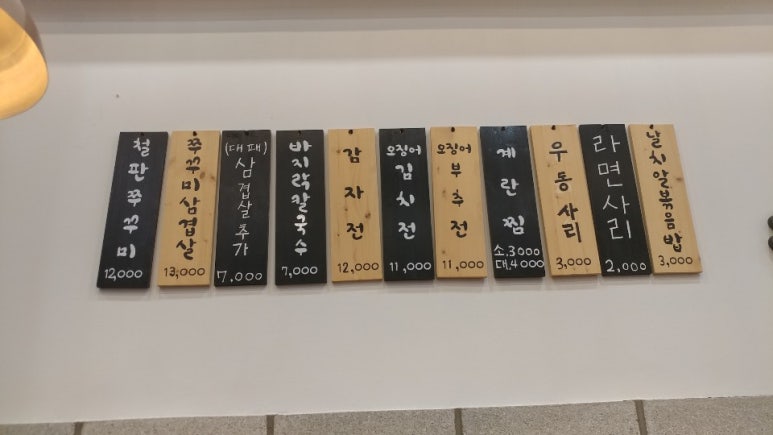 철판쭈꾸미
12,000
쭈꾸미삼겹살
13,000
(대패)
삼겹살추가
7,000
바지락칼국수
7,000
감자전
12,000
오징어
김치전
11,000
오징어
부추전
11,000
계란찜
소.3000
대.4000
우동사리
3,000
라면사리
2,000
날치알볶음밥
3,000